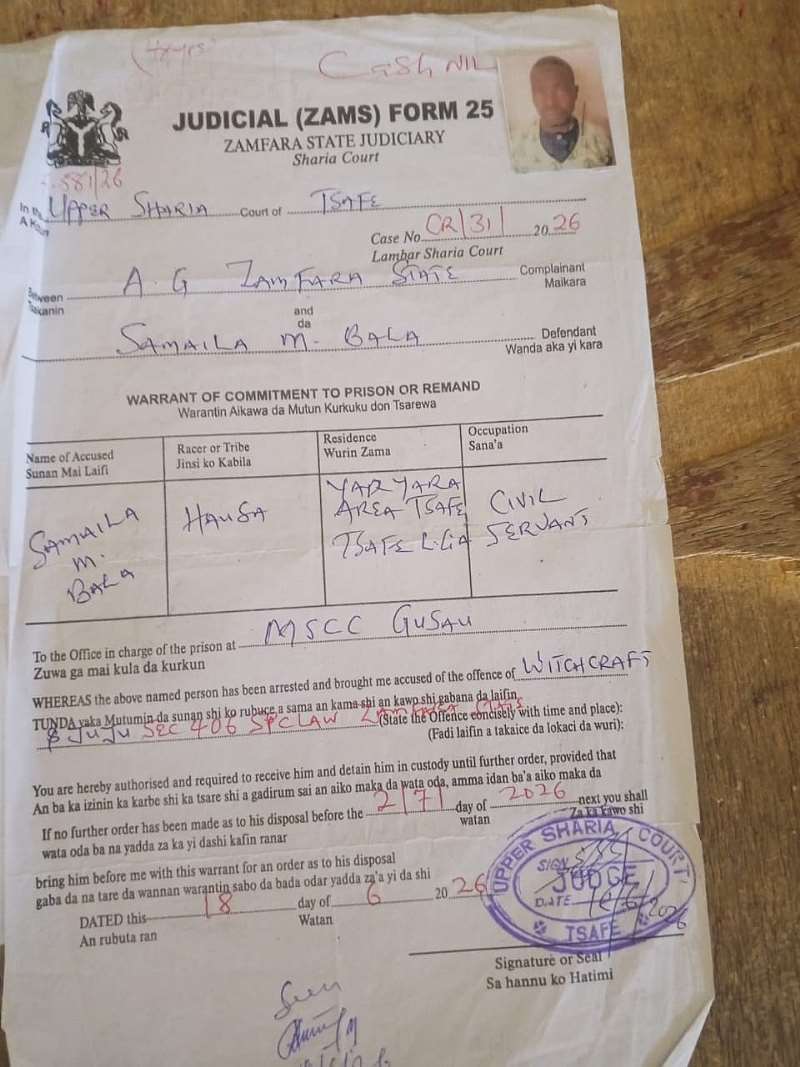 (47yrs)
Cash NIL
JUDICIAL (ZAMS) FORM 25
ZAMFARA STATE JUDICIARY
Sharia Court
581/26
In the UPPER SHARIA Court of TSAFE
A
Case No CR/31/ 2026
Lambar Sharia Court
Between A. G ZAMFARA STATE Complainant
Tsakanin Maikara
and
da
SAMAILA M. BALA Defendant
Wanda aka yi kara
WARRANT OF COMMITMENT TO PRISON OR REMAND
Warantin Aikawa da Mutun Kurkuku don Tsarewa
Name of Accused
Sunan Mai Laifi
Racer or Tribe
Jinsi ko Kabila
Residence
Wurin Zama
Occupation
Sana'a
SAMAILA
M.
BALA
HAUSA
YAR YARA
AREA TSAFE,
TSAFE L.GA
CIVIL
SERVANT
To the Office in charge of the prison at MSCC GUSAU
Zuwa ga mai kula da kurkun
WHEREAS the above named person has been arrested and brought me accused of the offence of WITCHCRAFT
TUNDA yaka Mutumin da sunan shi ko rubuce a sama an kama shi an kawp shi gabana da laifin
& JUJU SEC 406 SPCLAW (State the Offence concisely with time and place):
(Fadi laifin a takaice da lokaci da wuri):
You are hereby authorised and required to receive him and detain him in custody until further order, provided that
An ba ka izinin ka karbe shi ka tsare shi a gadirum sai an aiko maka da wata oda, amma idan ba'a aiko maka da
If no further order has been made as to his disposal before the 2/7/ day of 2026 next you shall
watan Za ka kawo shi
wata oda ba na yadda za ka yi dashi kafin ranar
bring him before me with this warrant for an order as to his disposal
gaba da na tare da wannan warantin sabo da bada odar yadda za'a yi da shi
DATED this 18 day of 6 2026
An rubuta ran Watan
UPPER SHARIA COURT
SIGN
JUDGE
DATE
TSAFE
Signature or Seal
Sa hannu ko Hatimi